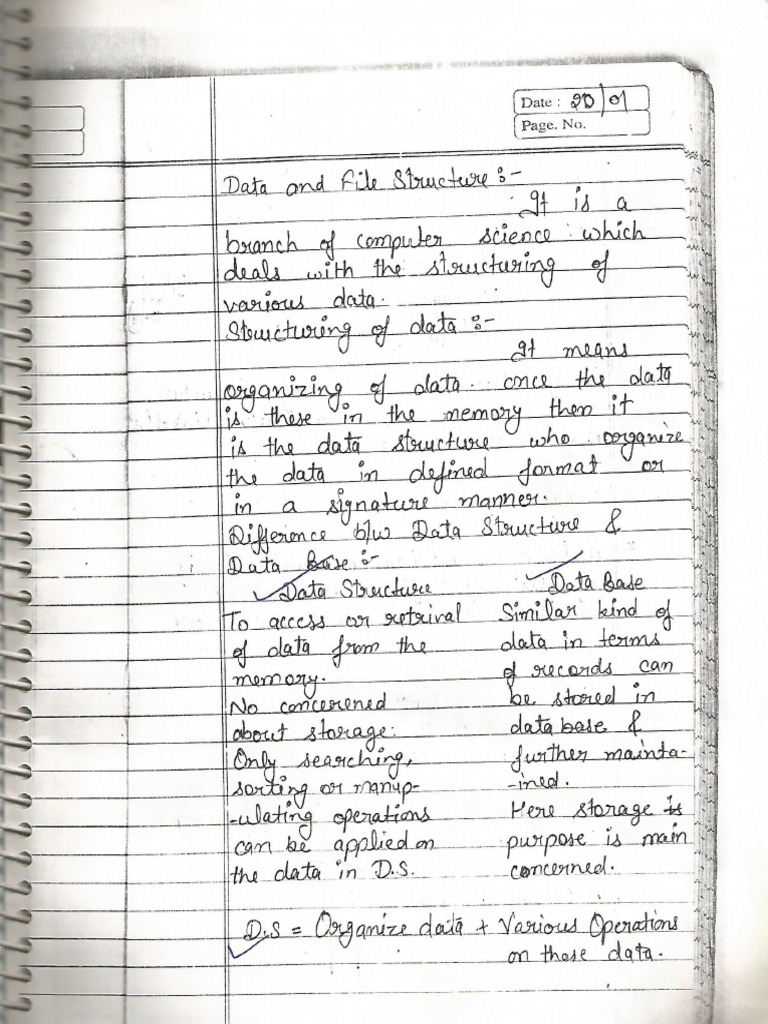 Date : 20/01
Page. No.
Data and File Structure :-
It is a
branch of computer science which
deals with the structuring of
various data.
Structuring of data :-
It means
organizing of data. once the data
is these in the memory then it
is the data structure who organize
the data in defined format or
in a signature manner.
Difference b/w Data Structure &
Data Base :-
Data Structure
To access or retrival
of data from the
memory.
No concerened
about storage.
Only searching,
sorting or manup-
-ulating operations
can be applied on
the data in D.S.
Data Base
Similar kind of
data in terms
of records can
be stored in
data base &
further mainta-
-ined.
Here storage is
purpose is main
concerned.
D.S = Organize data + Various Operations
on these data.